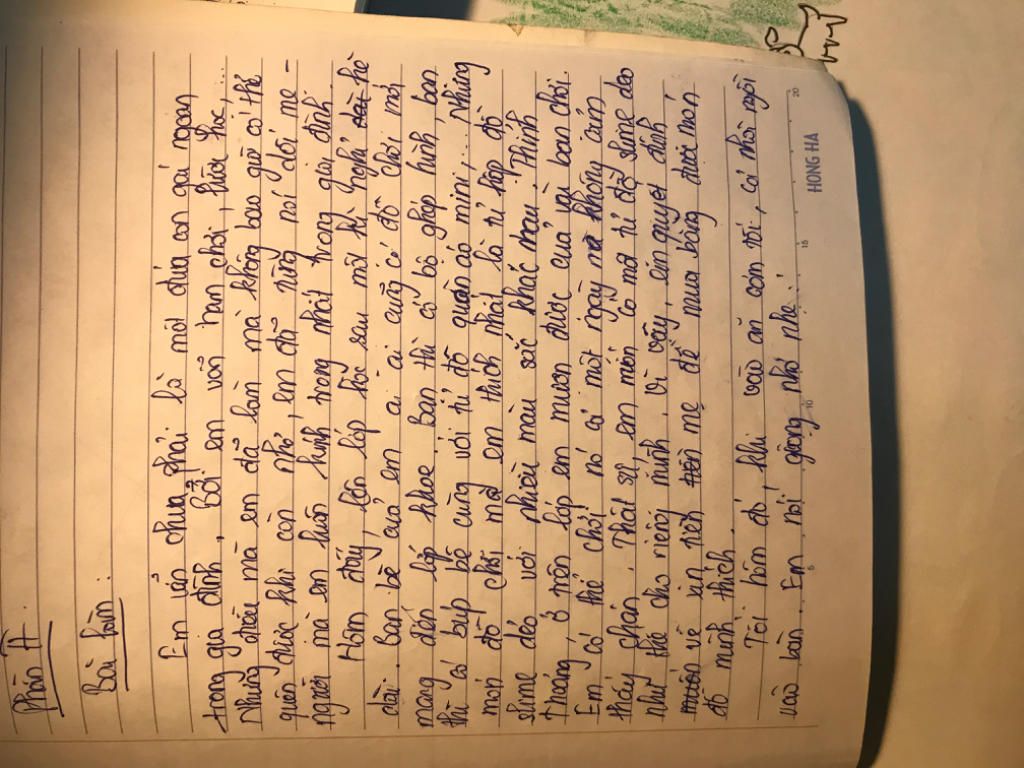 Phần A
Bài làm:
Em vẫn chưa phải là một đứa con gái ngoan
trong gia đình. Bởi em vẫn ham chơi, lười học,...
Những điều mà em đã làm mà không bao giờ có thể
quên được khi còn nhỏ, em đã từng nói dối mẹ -
người mà em luôn kính trọng nhất trong gia đình.
Hôm đấy, lên lớp học sau một kì nghỉ dài hè
dài. Bạn bè của em ai ai cũng có đồ chơi mới
mang đến lớp khoe. Bạn thì có bộ ghép hình, bạn
thì có búp bê cùng với tủ đồ quần áo mini,... Nhưng
món đồ chơi mà em thích nhất là tủ hộp đồ
slime dẻo với nhiều màu sắc khác nhau. Thỉnh
thoảng ở trên lớp em mượn được của vài bạn chơi.
Em có thể chơi nó cả một ngày mà không cảm
thấy chán. Thật sự, em muốn có một tủ đồ slime dẻo
như thế cho riêng mình. Vì vậy, em quyết định
muốn về xin tiền mẹ để mua bằng được món
đồ mình thích.
Tối hôm đó, khi vào ăn cơm tối, cả nhà ngồi
vào bàn. Em nói giọng nhỏ nhẹ:
HONG HA
5
10
15
20